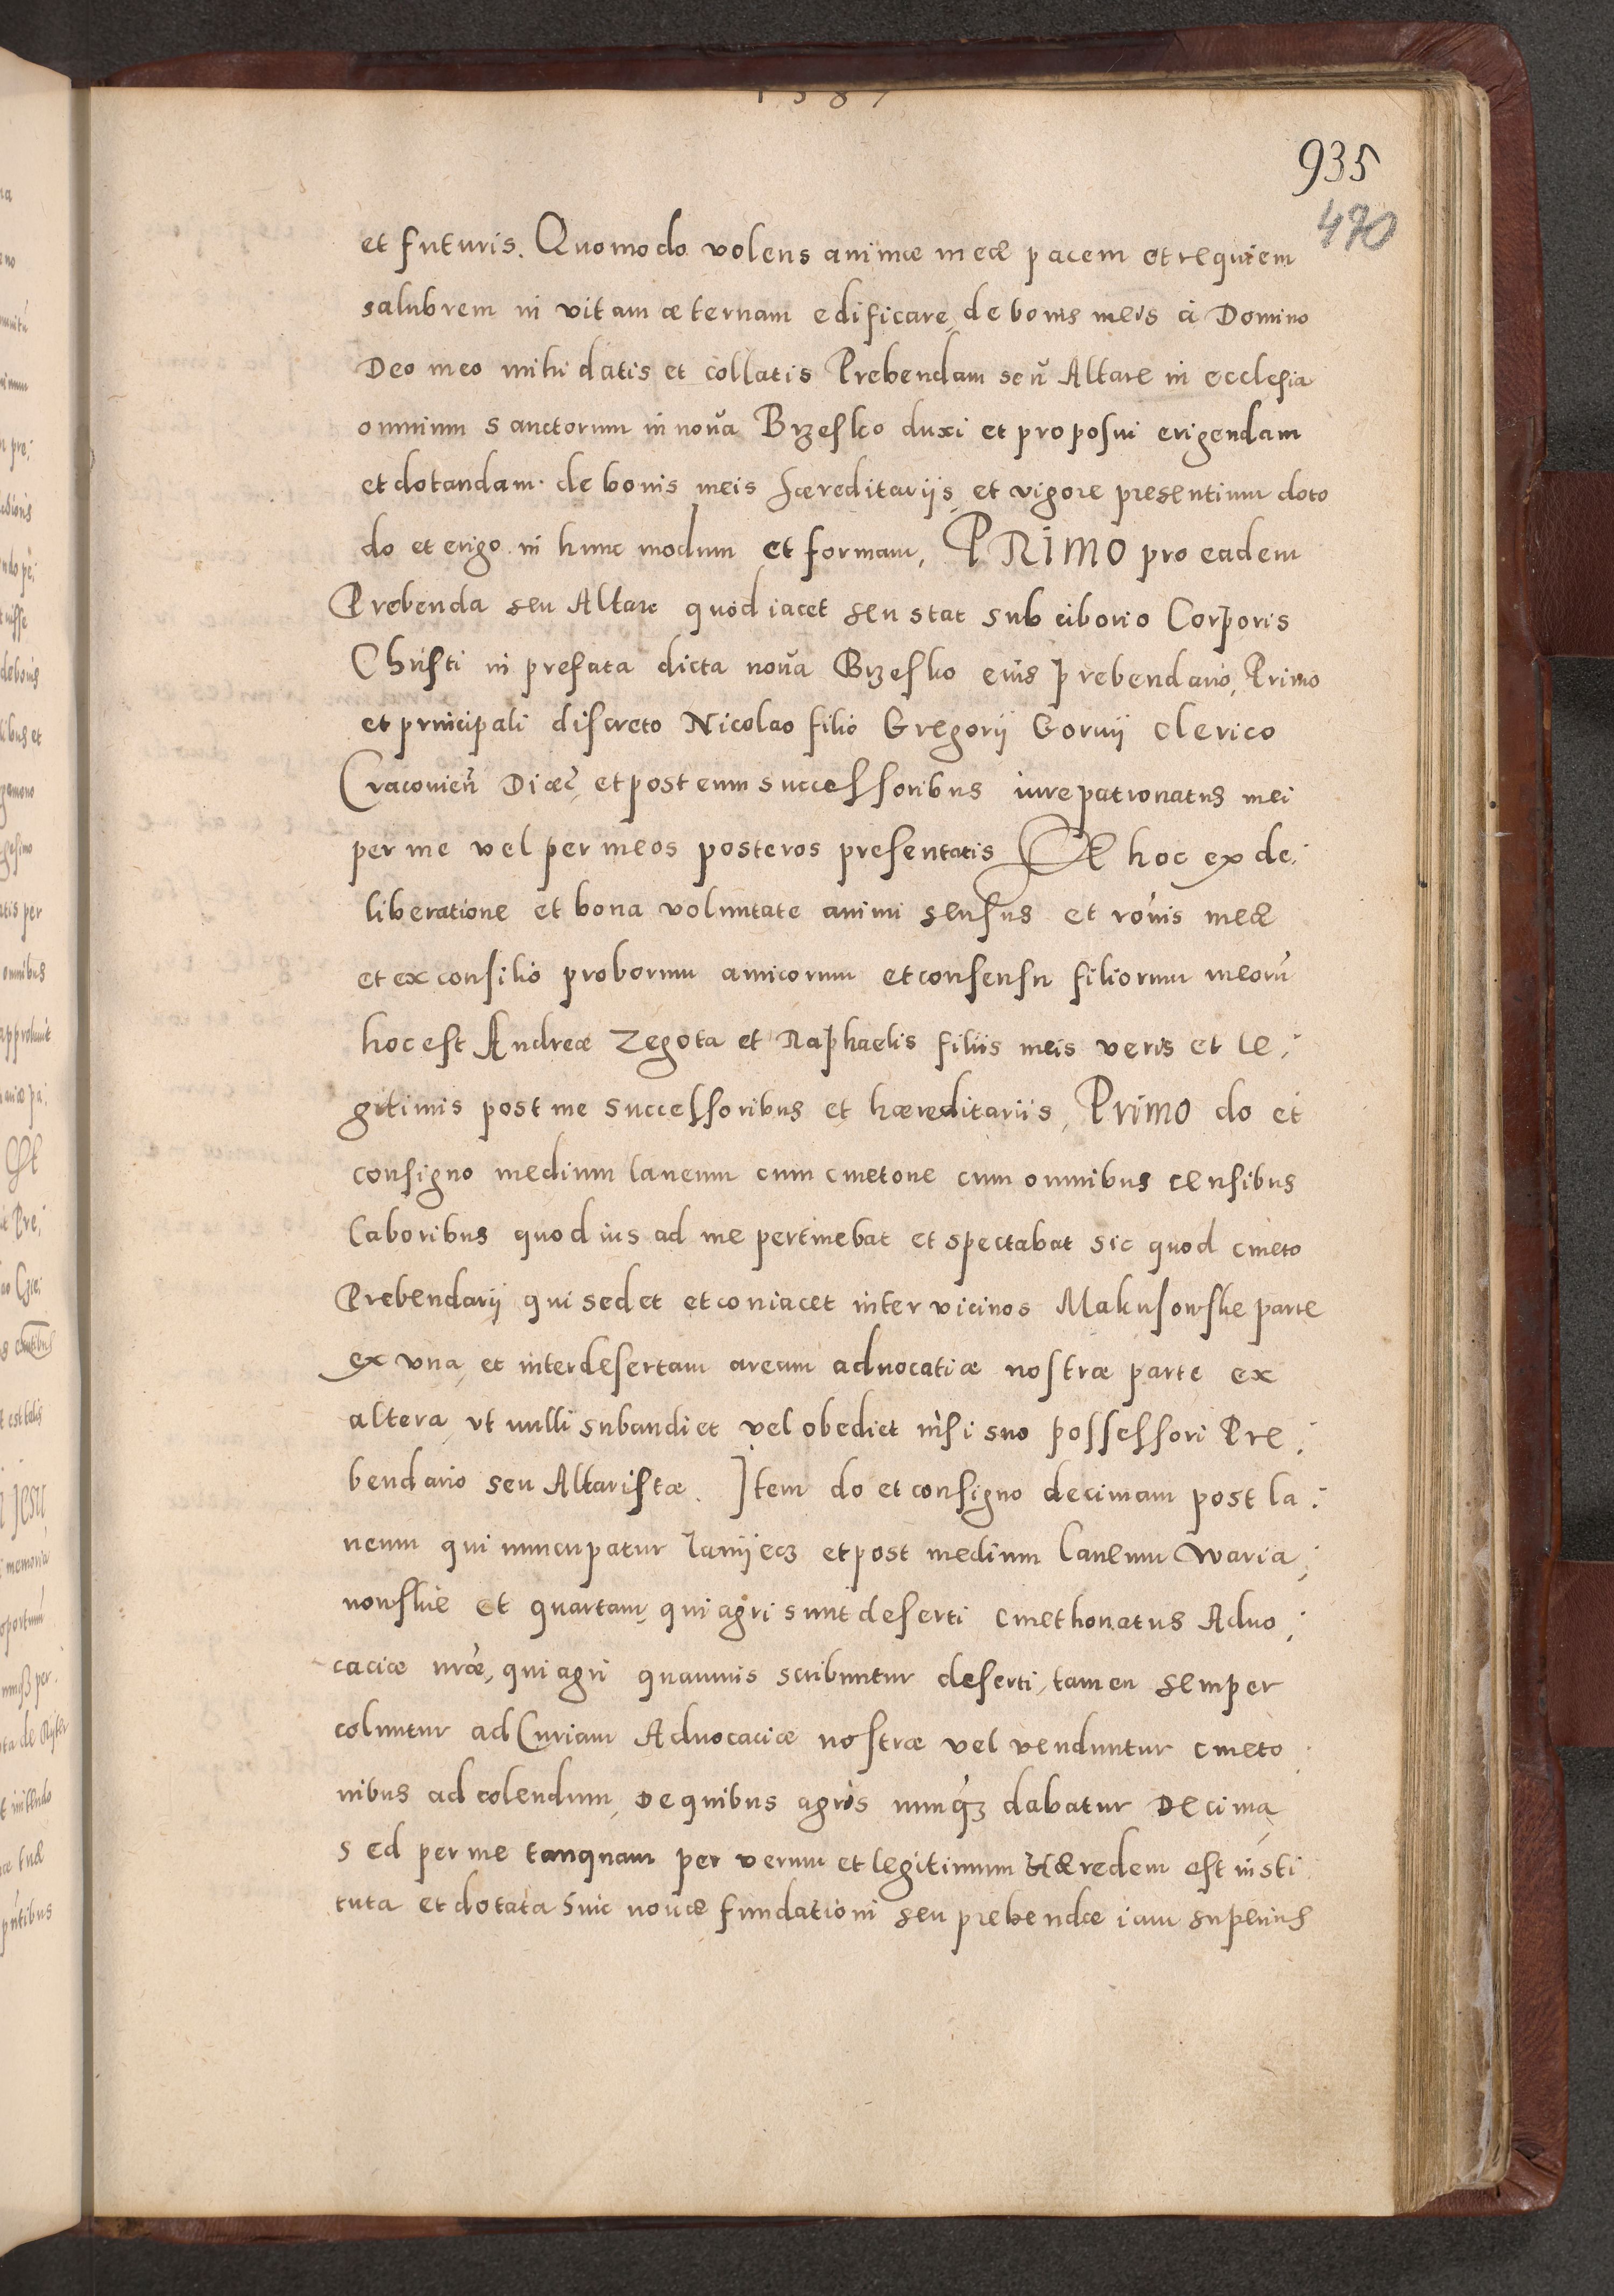 1587
935
470
et futuris. Quomodo volens animæ meæ pacem et requiem
salubrem in vitam æternam edificare, de bonis meis à Domino
Deo meo mihi datis et collatis Prebendam seu Altare in ecclesia
omnium Sanctorum in noua Brzesko duxi et proposui erigendam
et dotandam. de bonis meis hæreditarijs, et vigore presentium doto
do et erigo in hunc modum et formam, PRIMO pro eadem
Prebenda seu Altare quod iacet seu stat sub ciborio Corporis
Christi in prefata dicta noua Brzesko eius prebendario, Primo
et principali discreto Nicolao filio Gregorij Goruij clerico
Cracouien̄ Diœc̄, et post eum successoribus iure patronatus mei
per me vel per meos posteros presentatis Et hoc ex de⸗
liberatione et bona voluntate animi sensus et rōnis meæ
et ex consilio proborum amicorum et consensu filiorum meorū
hoc est Andreæ Zegota et Raphaelis filiis meis veris et le⸗
gitimis post me successoribus et hæreditariis, Primo do et
consigno medium laneum cum cmetone cum omnibus censibus
laboribus quod ius ad me pertinebat et spectabat sic quod cmeto
Prebendarij qui sedet et coniacet inter vicinos Makusowske parte
ex vna, et inter desertam aream aduocatiæ nostræ parte ex
altera, vt nulli subaudiet vel obediet nisi suo possessori Pre⸗
bendario seu Altaristæ. Item do et consigno decimam post la⸗
neum qui nuncupatur et post medium laneum Waria⸗
nowskie et quartam, qui agri sunt deserti cmethonatus Aduo⸗
caciæ nr̄æ, qui agri quamuis scribuntur deserti, tamen semper
coluntur ad Curiam Aduocaciæ nostræ vel venduntur cmeto⸗
nibus ad colendum, De quibus agris nunq̄ȝ dabatur Decima,
sed per me tanquam per verum et legitimum Hæredem est insti⸗
tuta et dotata huic nouæ fundationi seu prebendæ iam superius